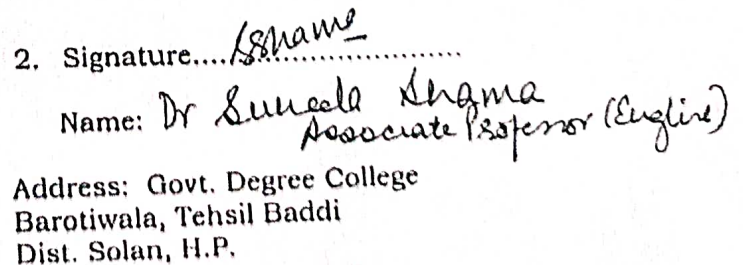 2. Signature....SSharma....................
Name: Dr Suneela Sharma
Associate Professor (English)
Address: Govt. Degree College
Barotiwala, Tehsil Baddi
Dist. Solan, H.P.